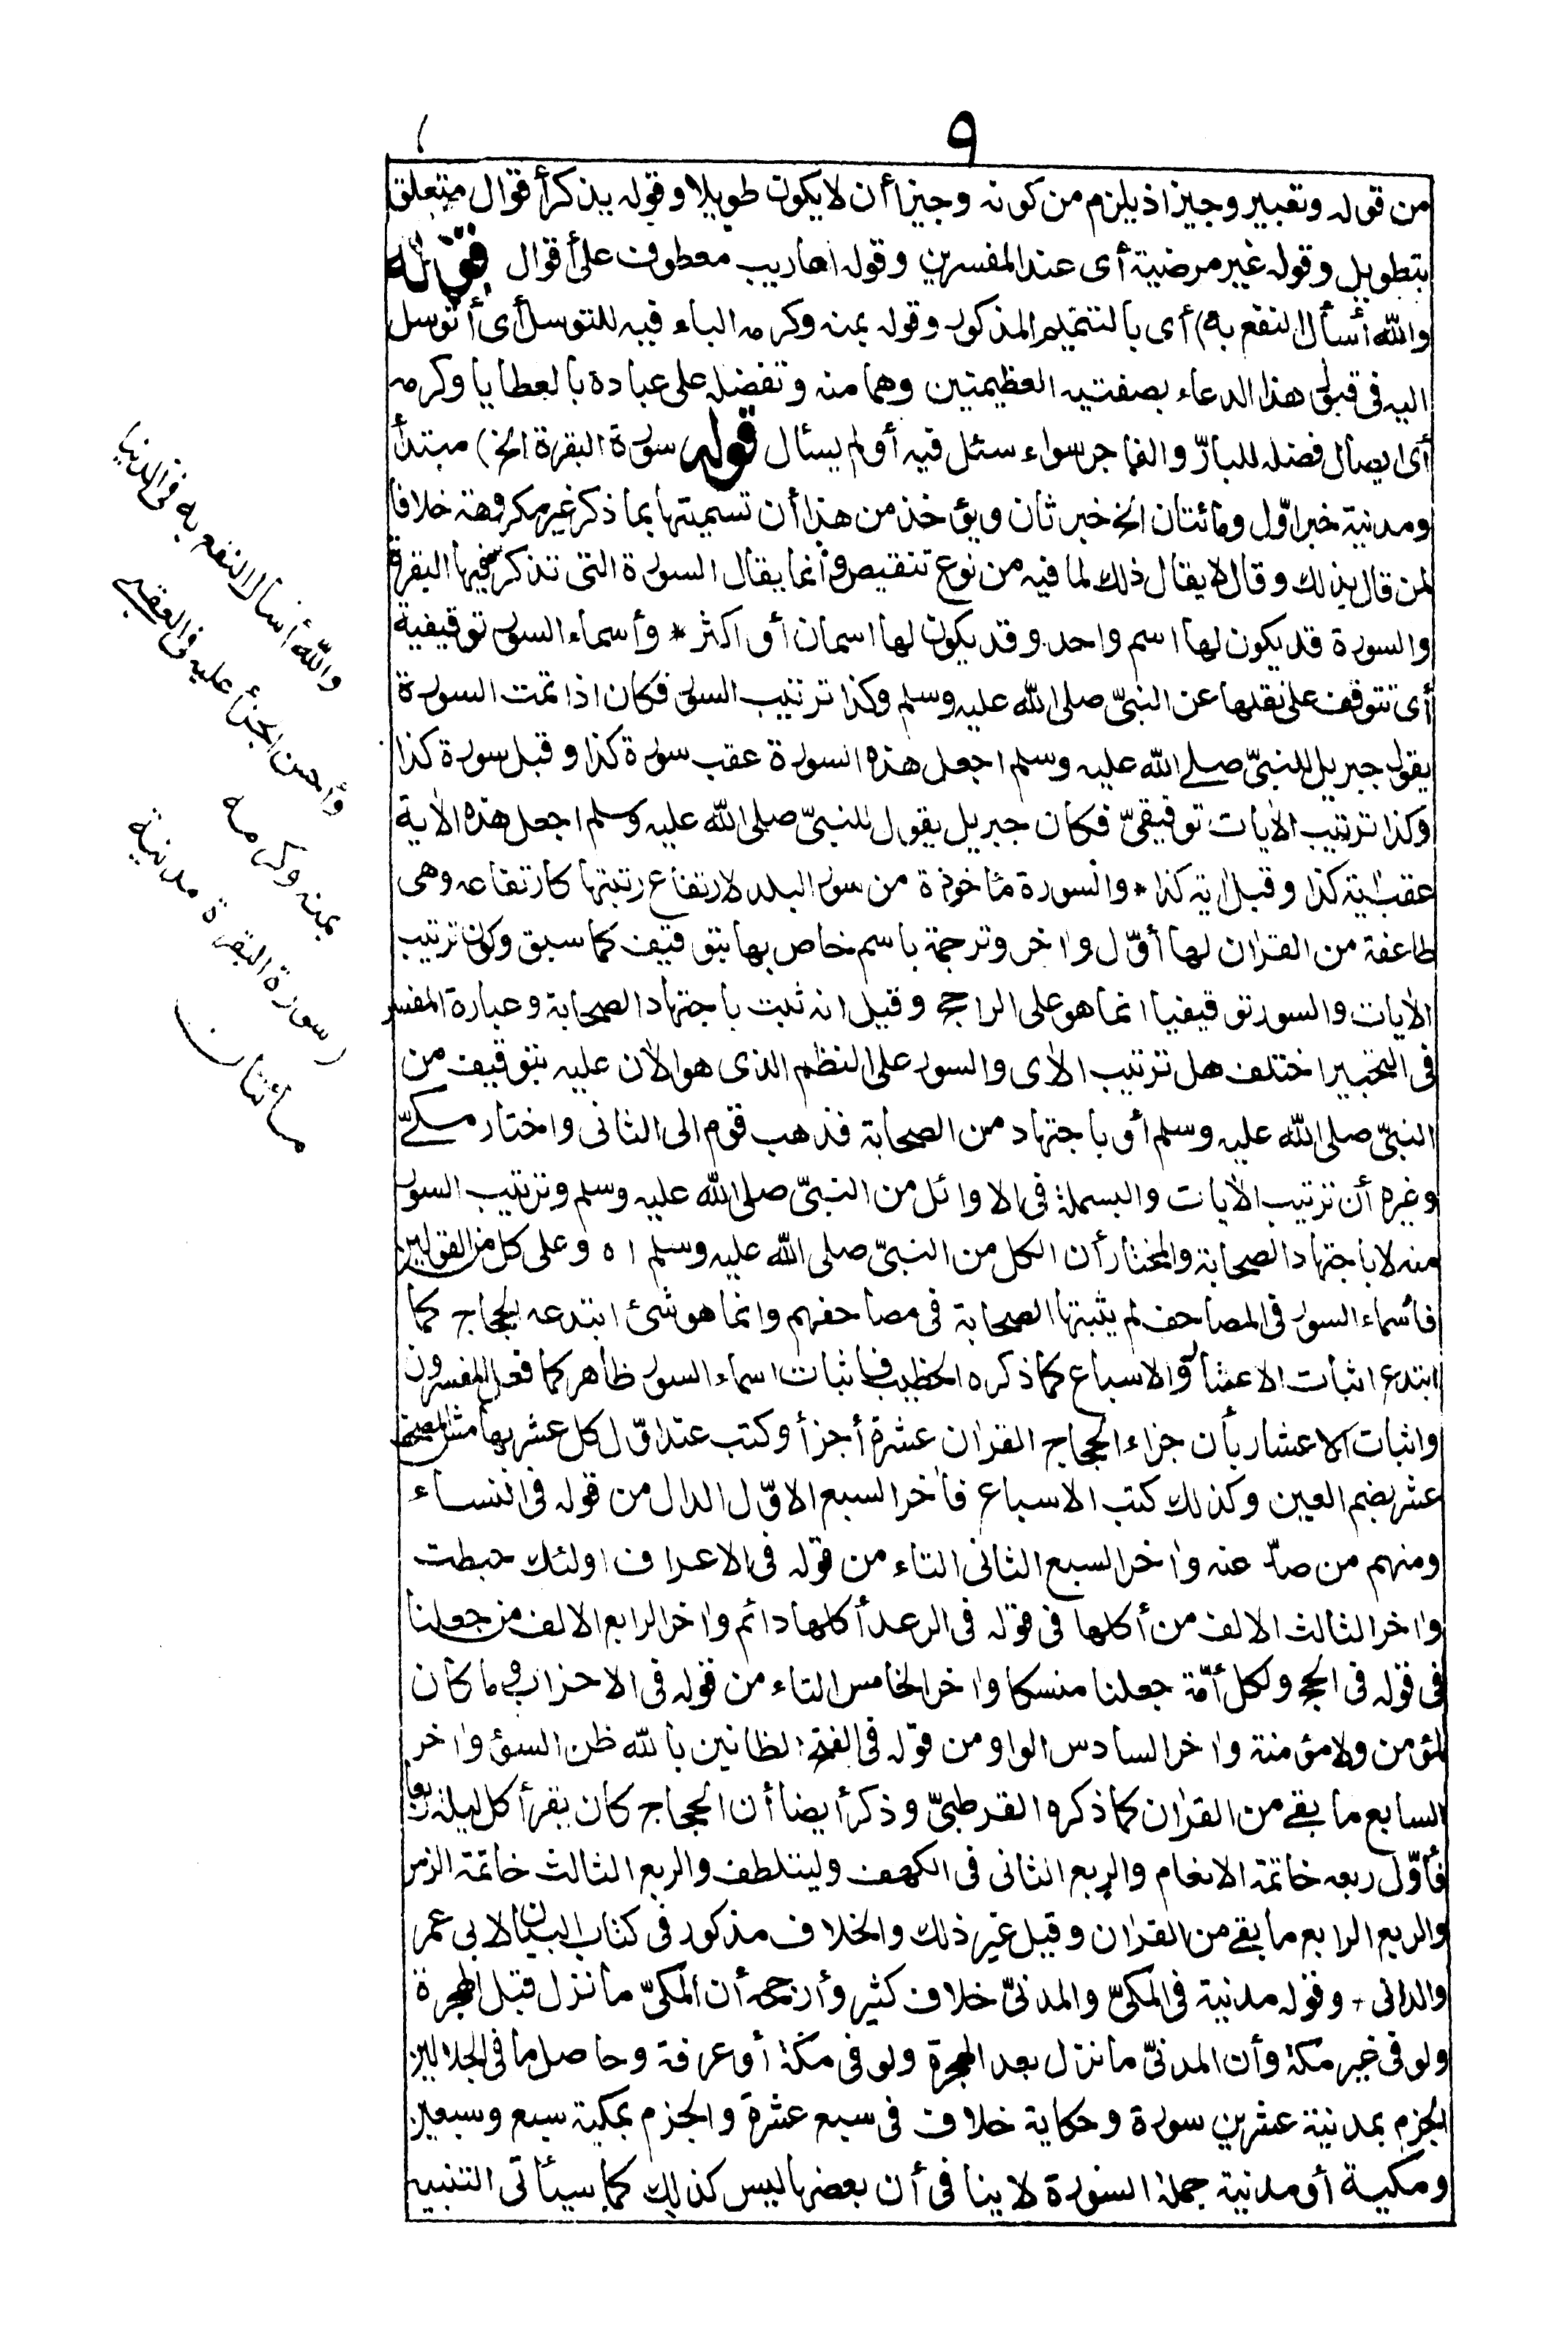 ٩
من قوله وتعبير وجيز اذ يلزم من كونه وجيزا أن لا يكون طويلا وقوله بذكر أقوال متعلق
بتطويل وقوله غير مرضية أى عند المفسرين وقوله اعاريب معطوف على أقوال قوله
والله أسأل النفع به) أى بالتتميم المذكور وقوله بمنه وكرمه الباء فيه للتوسل أى أتوسل
اليه فى قبول هذا الدعاء بصفتيه العظيمتين وهما منه وتفضله على عباده بالعطايا وكرمه
أى ايصال فضله للبارّ والفاجر سواء سئل فيه أو لم يسأل قوله سورة البقرة الخ) مبتدأ
ومدنية خبر اوّل ومائتان الخ خبر ثان ويؤخذ من هذا أن تسميتها بما ذكر غير مكروهة خلافا
لمن قال بذلك وقال لا يقال ذلك لما فيه من نوع تنقيص وأنما يقال السورة التى تذكر فيها البقرة
والسورة قد يكون لها اسم واحد وقد يكون لها اسمان أو اكثر * وأسماء السور توقيفية
أى تتوقف على نقلها عن النبىّ صلى الله عليه وسلم وكذا ترتيب السور فكان اذا تمت السورة
يقول جبريل للنبىّ صلى الله عليه وسلم اجعل هذه السورة عقب سورة كذا وقبل سورة كذا
وكذا ترتيب الاٰيات توقيفىّ فكان جبريل يقول للنبىّ صلى الله عليه وسلم اجعل هذه الاٰية
عقب اٰية كذا وقبل اٰية كذا * والسورة مأخوذة من سور البلد لارتفاع رتبتها كارتفاعه وهى
طائفة من القراٰن لها أوّل واٰخر وترجمة باسم خاص بها بتوقيف كما سبق وكون ترتيب
الاٰيات والسور توقيفيا انما هو على الراجح وقيل انه ثبت باجتهاد الصحابة وعبارة المفسر
فى التحبير اختلف هل ترتيب الاٰى والسور على النظم الذى هو الاٰن عليه بتوقيف من
النبىّ صلى الله عليه وسلم أو باجتهاد من الصحابة فذهب قوم الى الثانى واختار مكىّ
وغيره أن ترتيب الاٰيات والبسملة فى الاوائل من النبىّ صلى الله عليه وسلم وترتيب السور
منه لا باجتهاد الصحابة والمختار أن الكل من النبىّ صلى الله عليه وسلم اه وعلى كل من القولين
فأسماء السور فى المصاحف لم يثبتها الصحابة فى مصاحفهم وانما هو شئ ابتدعه الحجاج كما
ابتدع اثبات الاعشار والاسباع كما ذكره الخطيب فاثبات اسماء السور ظاهر كما فعل المفسرون
واثبات الاعشار بأن جزاء الحجاج القراٰن عشرة أجزأ وكتب عند اوّل كل عشر بهامش المصحف
عشر بضم العين وكذلك كتب الاسباع فاٰخر السبع الاوّل الدال من قوله فى النساء
ومنهم من صدّ عنه واٰخر السبع الثانى التاء من قوله فى الاعراف اولئك حبطت
واٰخر الثالث الالف من أكلها فى قوله فى الرعد أكلها دائم واٰخر الرابع الالف من جعلنا
فى قوله فى الحج ولكل أمّة جعلنا منسكا واٰخر الخامس التاء من قوله فى الاحزاب وما كان
لمؤمن ولا مؤمنة واٰخر السادس الواو من قوله فى الفتح الظانين بالله ظن السوء واٰخر
السابع ما بقى من القراٰن كما ذكره القرطبىّ وذكر أيضا أن الحجاج كان يقرأ كل ليلة ربعا
فأوّل ربعه خاتمة الانعام والربع الثانى فى الكهف وليتلطف والربع الثالث خاتمة الزمر
والربع الرابع ما بقى من القراٰن وقيل غير ذلك والخلاف مذكور فى كتاب البيان لابى عمر
والدانى * وقوله مدنية فى المكىّ والمدنىّ خلاف كثير وأرجحه أن المكىّ ما نزل قبل الهجرة
ولو فى غير مكة وأن المدنىّ ما نزل بعد الهجرة ولو فى مكة أو عرفة وحاصل ما فى الجلالين
الجزم بمدنية عشرين سورة وحكاية خلاف فى سبع عشرة والجزم بمكية سبع وسبعين
ومكية أو مدنية جملة السورة لا ينافى أن بعضها ليس كذلك كما سيأتى التنبيه
والله أسأل النفع به فى الدنيا
وأحسن الجزأ عليه فى العقبى
بمنه وكرمه
(سورة البقرة مدنية
مائتان